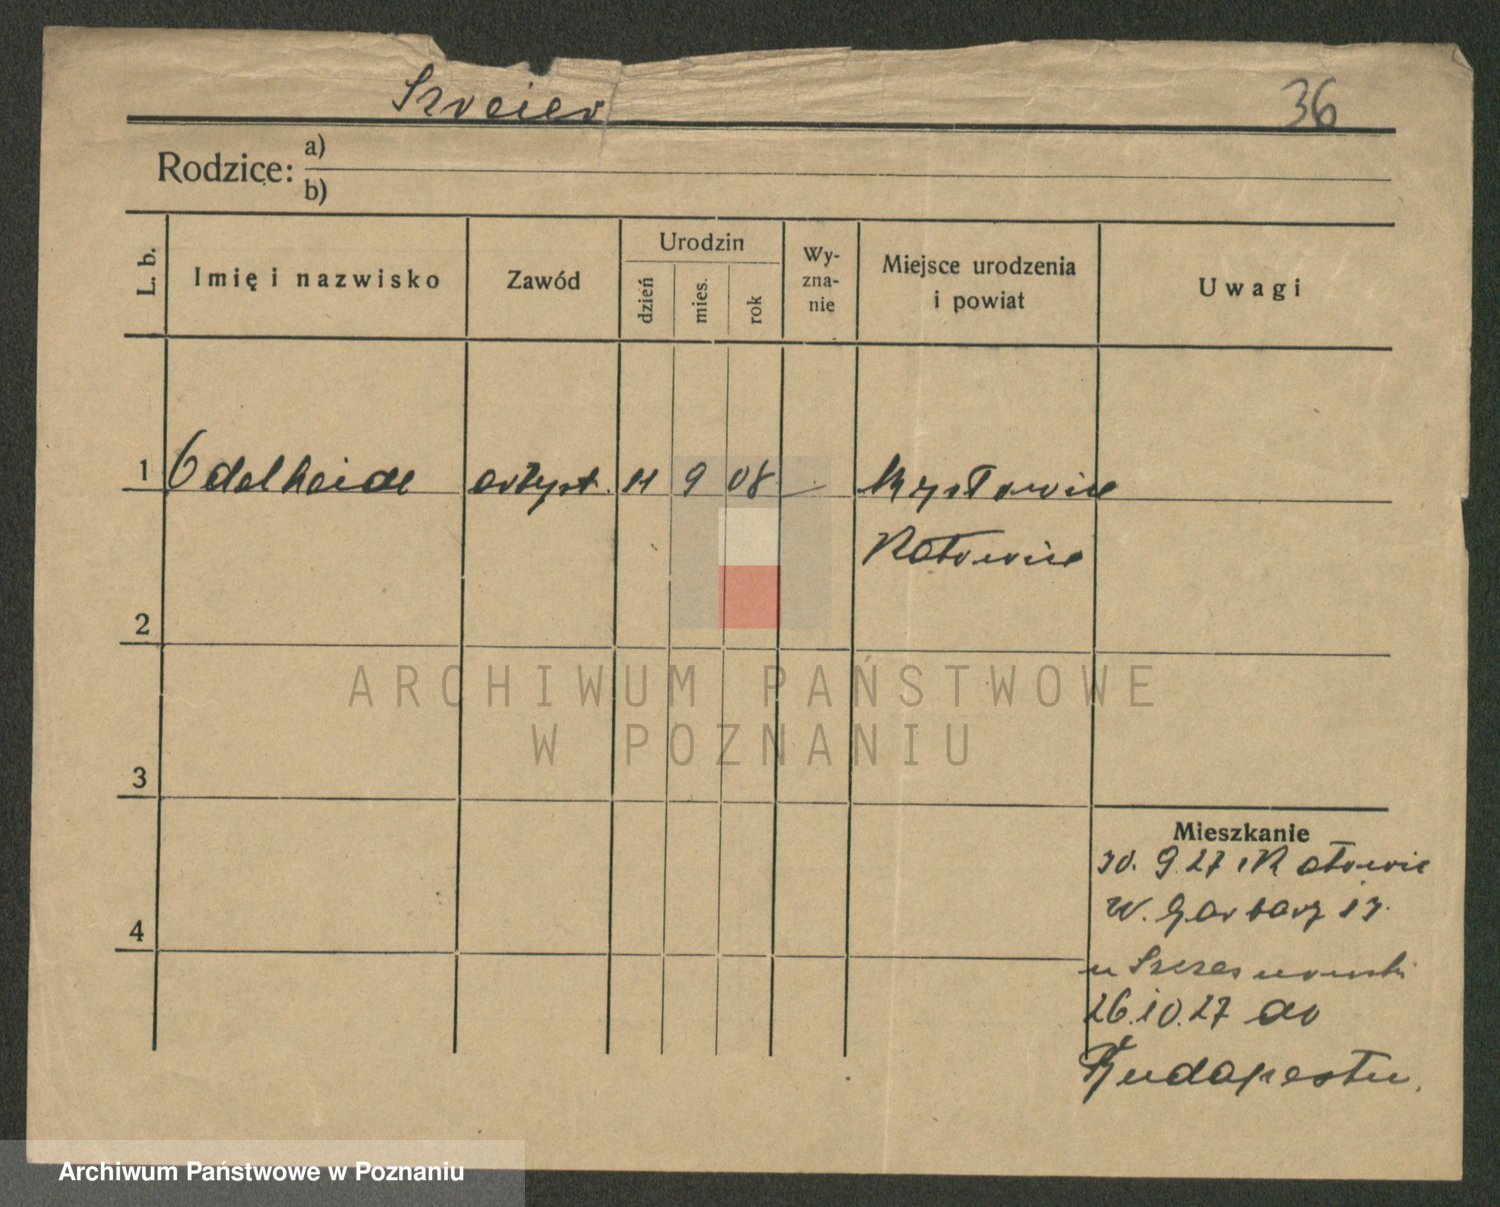 Szreier 36
Rodzice: a)
b)
L. b. Imię i nazwisko Zawód Urodzin dzień mies. rok Wy-zna-nie Miejsce urodzenia i powiat Uwagi
1 Odelheide artyst. 11 9 08 — Mysłowice
Katowice
2
3
4
Mieszkanie
30. 9.27 Katowic
W. Garbary 13.
u
26.10.27 do
Budapesztu.
ARCHIWUM PAŃSTWOWE
W POZNANIU
Archiwum Państwowe w Poznaniu